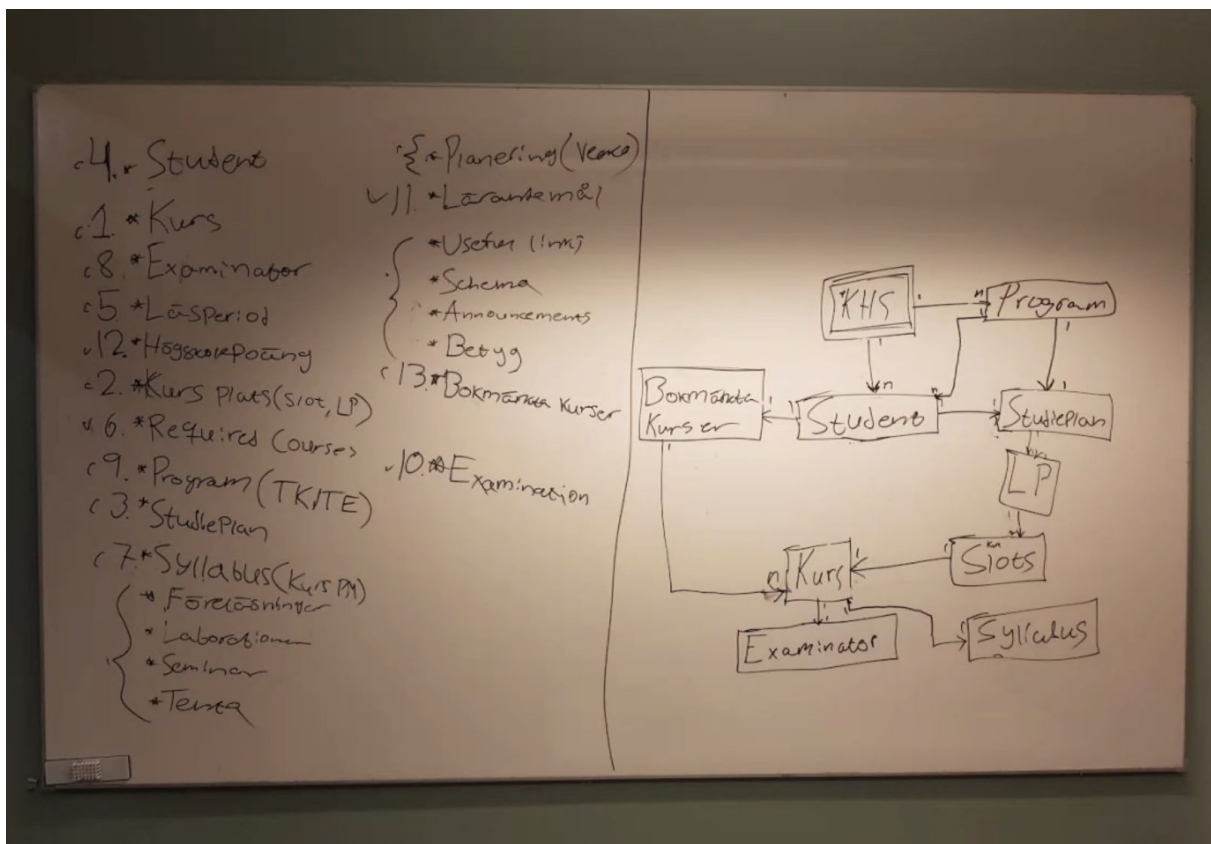 4. * Student
1. * Kurs
8. * Examinator
5. * Läsperiod
12. * Högskolepoäng
2. * Kurs Plats (Slot, LP)
6. * Required Courses
9. * Program (TKITE)
3. * StudiePlan
7. * Syllabus (Kurs PM)
* Föreläsningar
* Laborationer
* Seminar
* Tenta
* Planering (Vecka)
11. * Lärandemål
* Useful links
* Schema
* Announcements
* Betyg
13. * Bokmärkta Kurser
10. * Examination
KHS
1
n
Program
1
n
1
n
1
1
Bokmärkta
Kurser
1
1
Student
1
1
StudiePlan
1
LP
1
Slots
1
1
n
Kurs
1
1
1
Examinator
1
Syllabus